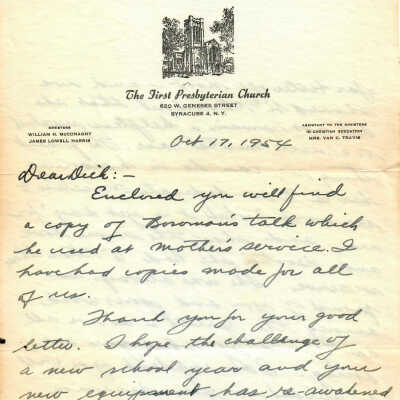 The First Presbyterian Church
620 W. GENESEE STREET
SYRACUSE 4, N.Y.
MINISTERS
WILLIAM H. McCONAGHY
JAMES LOWELL HARRIS
ASSISTANT TO THE MINISTERS
IN CHRISTIAN EDUCATION
MRS. VAN C. TRAVIS
Oct 17, 1954
Dear Dick:-
Enclosed you will find
a copy of Bowman's talk which
he used at Mother's service. I
have had copies made for all
of us.
Thank you for your good
letter. I hope the challenge of
a new school year and your
new equipment has re-awakened